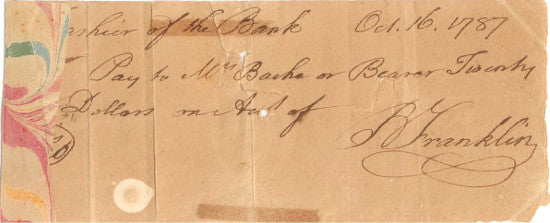 Cashier of the Bank Oct. 16. 1787
Pay to Mrs Bache or Bearer Twenty
Dollars on Acct of
B Franklin